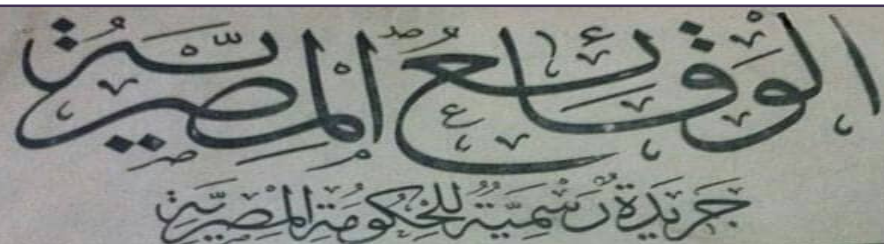 الوَقَائِعُ المِصْرِيَّةُ
جَرِيدَةٌ رَسْمِيَّةٌ لِلحُكُومَةِ المِصْرِيَّةِ